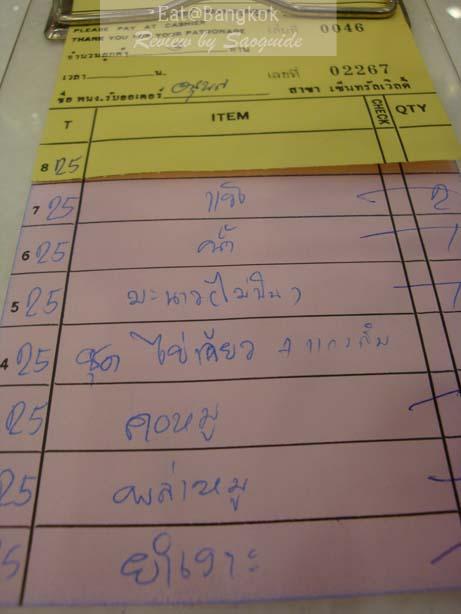 Eat@Bangkok
PLEASE PAY AT CASHIER
Review by Saoguide
THANK YOU FOR YOUR PATRONAGE เล่มที่ 0046
จำนวนลูกค้า ท่าน
เวลา น. เลขที่ 02267
ชื่อ พนง.รับออเดอร์ สาขา เซ็นทรัลเวิลด์
T ITEM CHECK QTY
8 25
7 25 แข็ง 2
6 25 น้ำ 1
5 25 มะนาว(ไม่ปั่น) 1
4 25 ชุด ไข่เจียว + แกงส้ม
25 คอหมู
25 พล่าหมู
5 ยำเงาะ